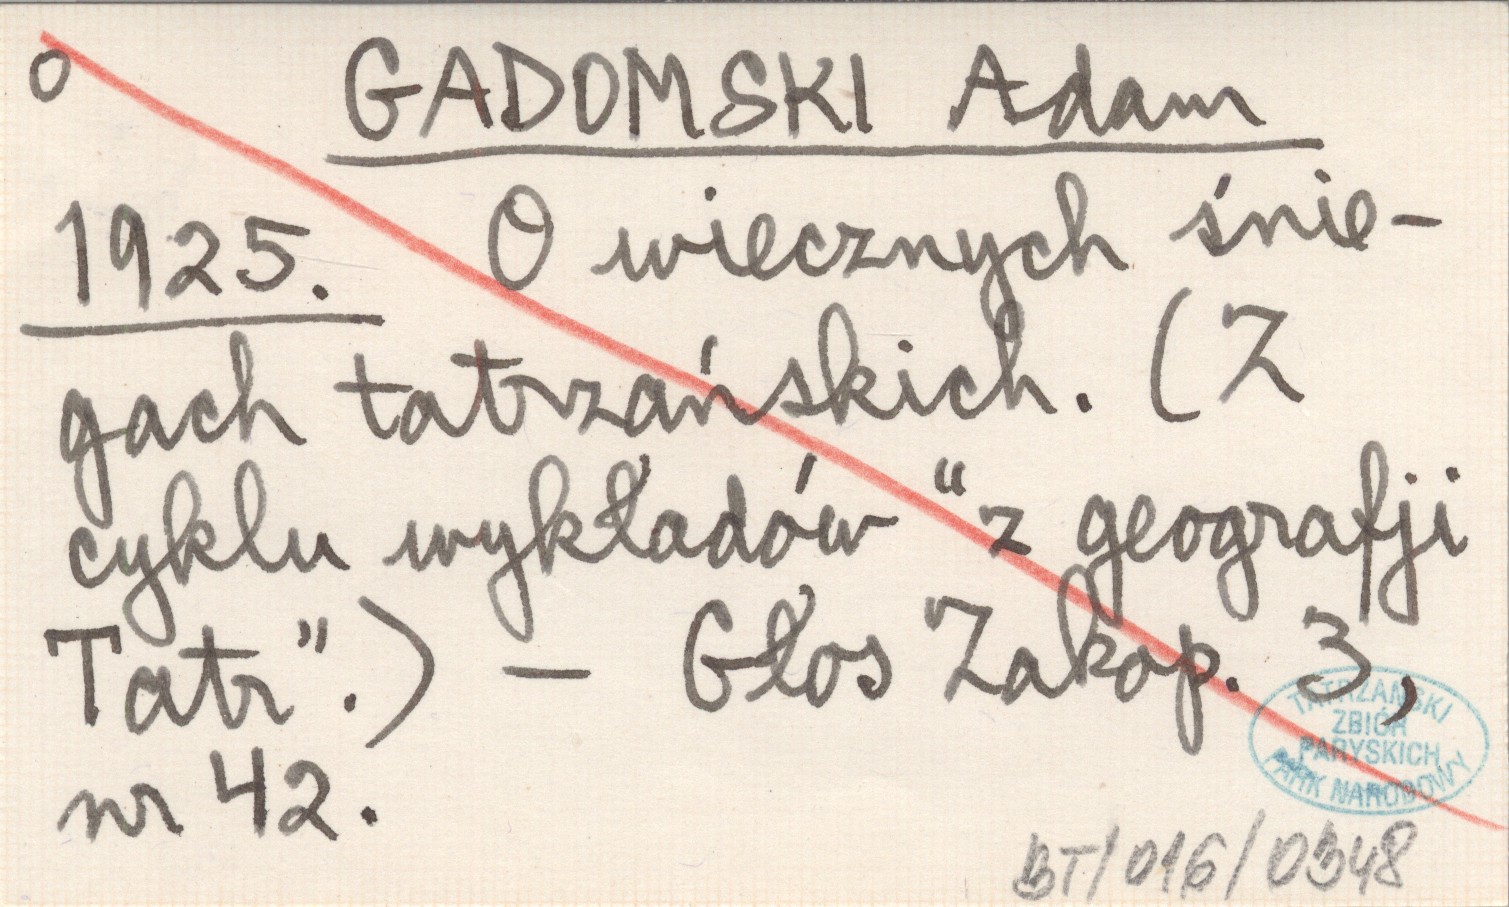 o GADOMSKI Adam
1925. O wiecznych śnie-
gach tatrzańskich. (Z
cyklu wykładów “z geografji
Tatr”.) – Głos Zakop. 3,
nr 42.
TATRZAŃSKI
ZBIÓR
PARYSKICH
PARK NARODOWY
BT/016/0348